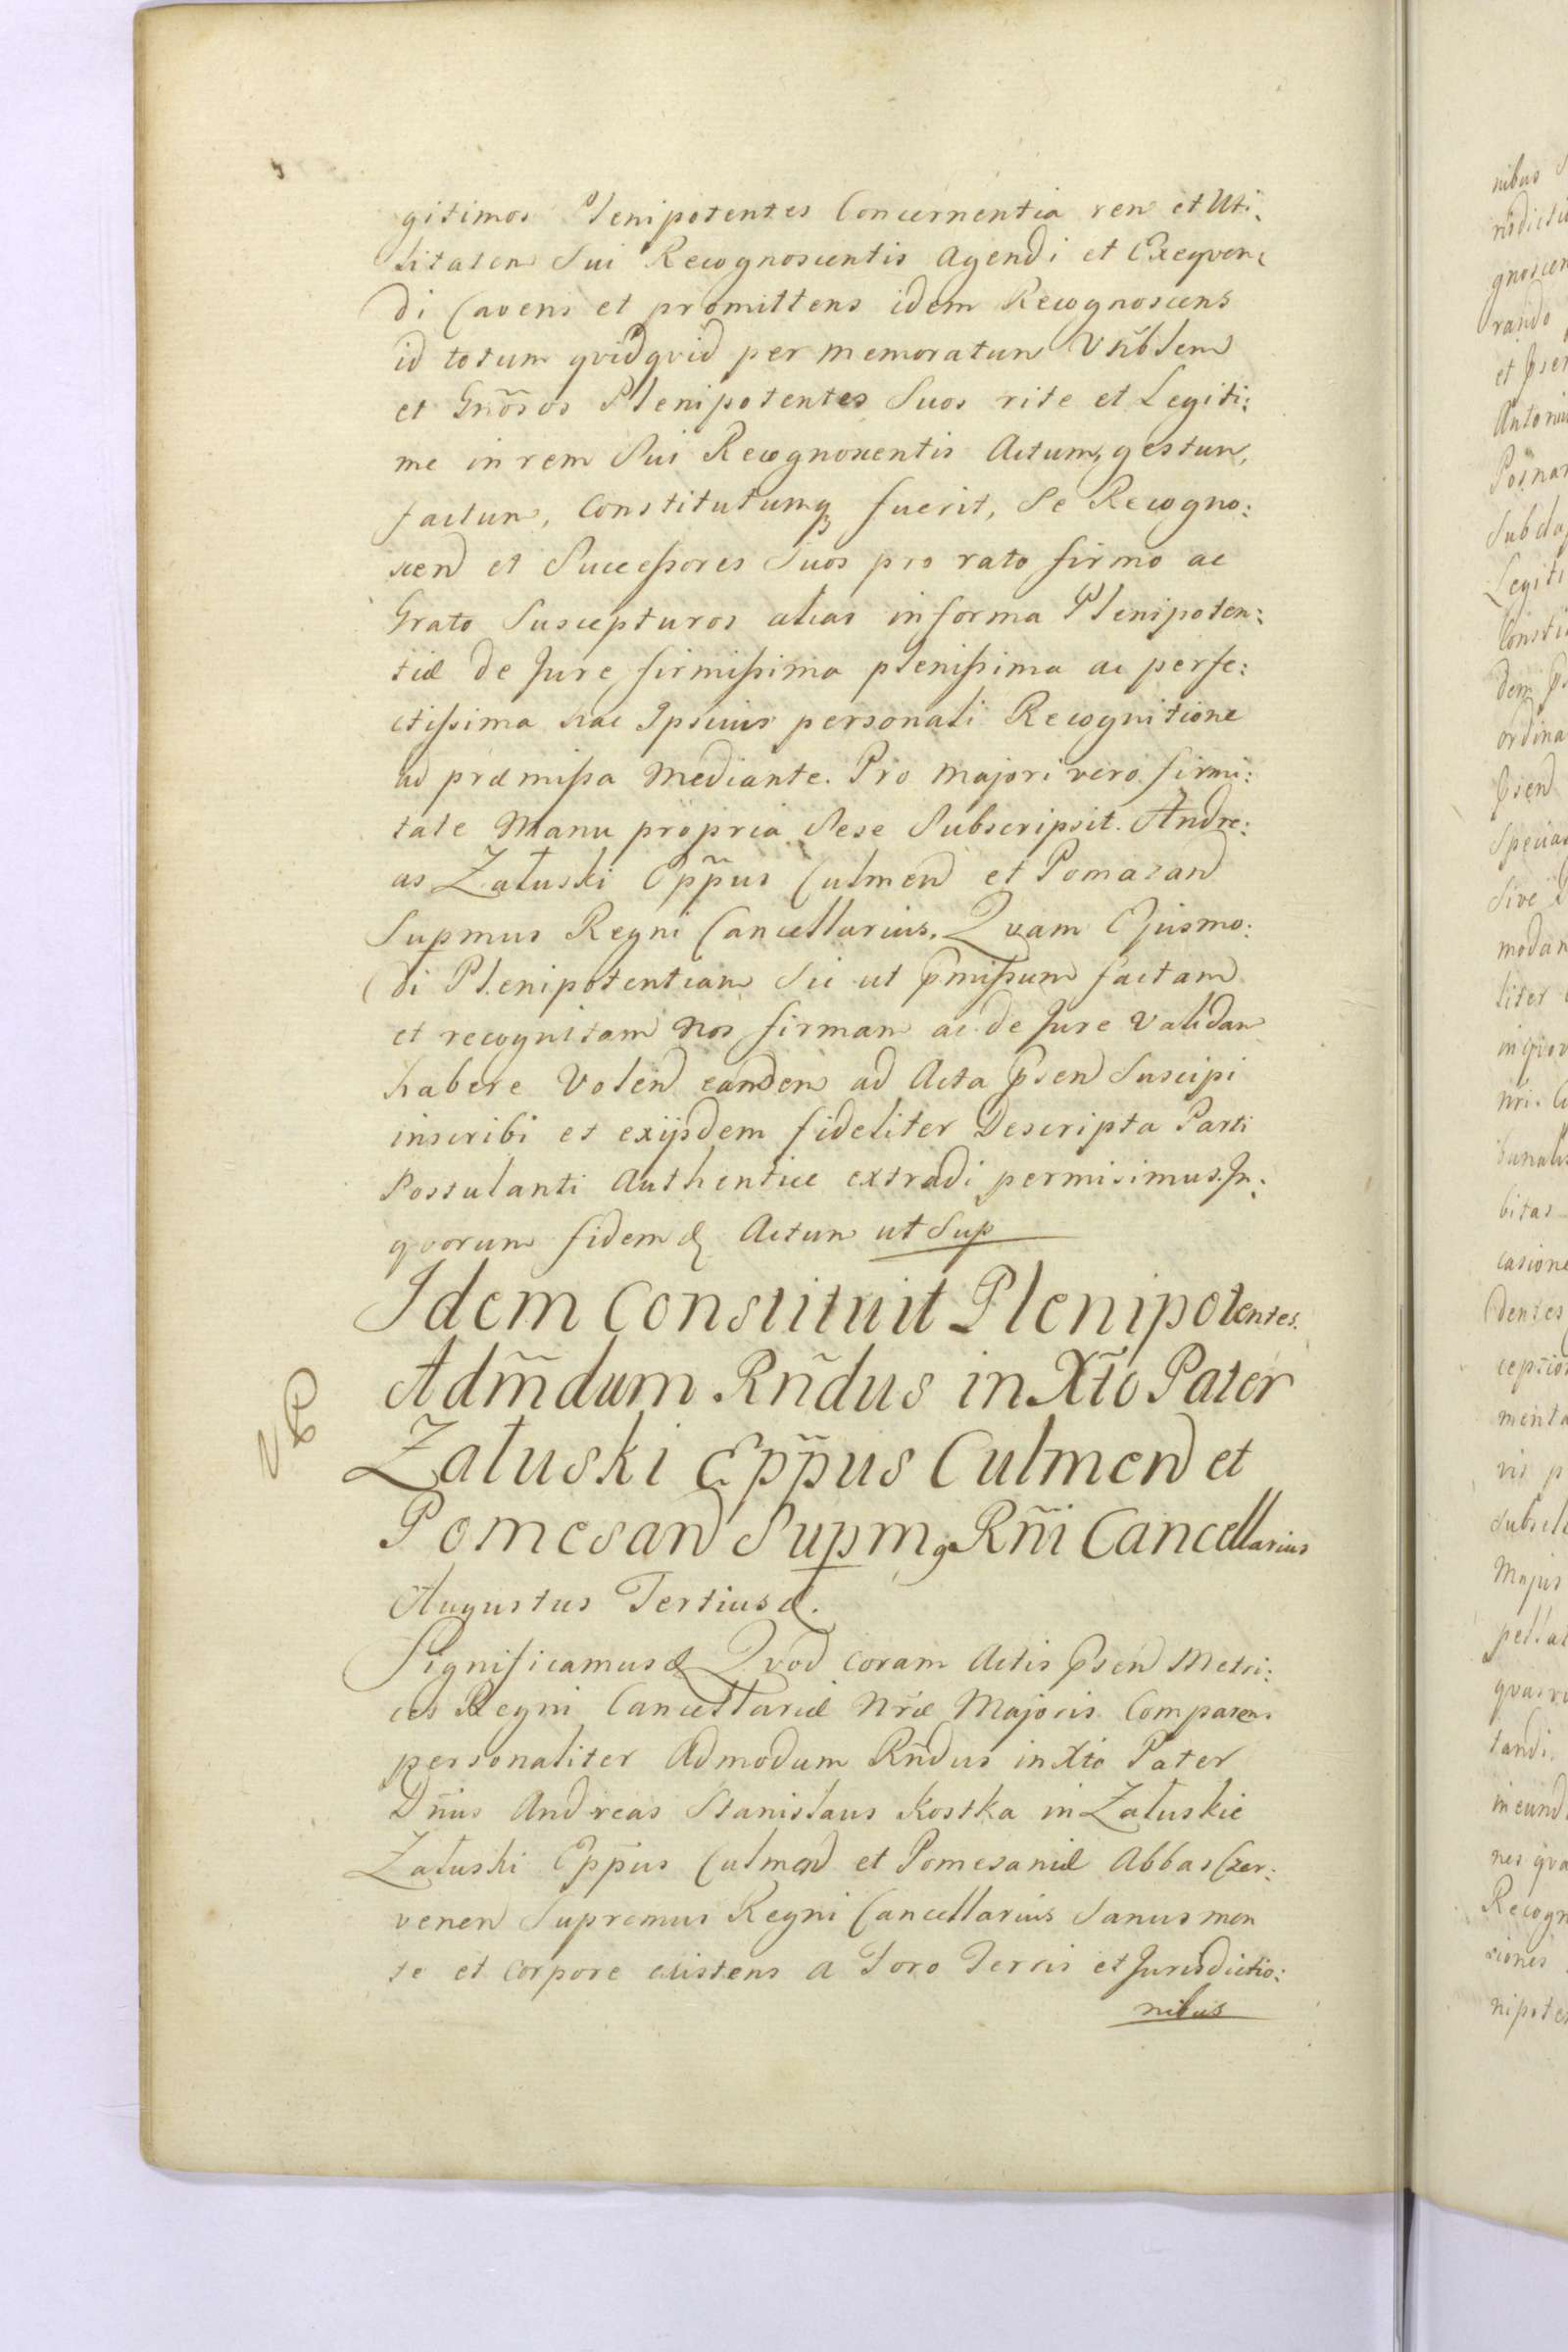 gitimos Plenipotentes Concernentia rem et Uti:
litatem Sui Recognoscentis Agendi et Exeqven:
di Cavens et promittens idem Recognoscens
id totum qvidqvid per memoratum Vrñblem
et Gnõsos Plenipotentes Suos rite et Legiti:
me in rem Sui Recognoscentis Actum, gestum,
factum, Constitutumq fuerit, Se Recogno:
scen et Successores Suos pro rato firmo ac
Grato Suscepturos alias in forma Plenipoten:
tiæ de Jure firmissima plenissima ac perfe:
ctissima hac Ipsius personali Recognitione
ad præmissa Mediante. Pro majori vero firmi:
tate Manu propria Sese Subscripsit. Andre:
as Załuski Epp̃us Culmen et Pomazan
Supmus Regni Cancellarius. Qvam Ejusmo:
di Plenipotentiam Sic ut p̃missum factam
et recognitam Nos firmam ac de Jure validam
habere Volen eandem ad Acta p̃sen Suscipi
inscribi et exijsdem fideliter Descripta Parti
Postulanti Authentice extradi permisimus. In:
qvorum fidem & Actum ut Sup
Idem Constituit Plenipotentes.
Adm̃dum Rñdus in Xt̃o Pater
Załuski Epp̃us Culmen et
Pomesan Supm9 Rñi Cancellarius
Augustus Tertius &.
Significamus & Qvod coram Actis p̃sen Metri:
ces Regni Cancellariæ Nr̃æ Majoris Comparens
personaliter Admodum Rñdus in Xt̃o Pater
Dñus Andreas Stanislaus Kostka in Załuskie
Załuski Epp̃us Culmen et Pomesaniæ Abbas Czer:
venen Supremus Regni Cancellarius Sanus men
te et corpore existens a Foro Terris et Jurisdictio:
nibus